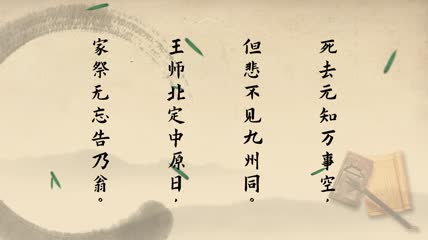 死去元知万事空，
但悲不见九州同。
王师北定中原日，
家祭无忘告乃翁。